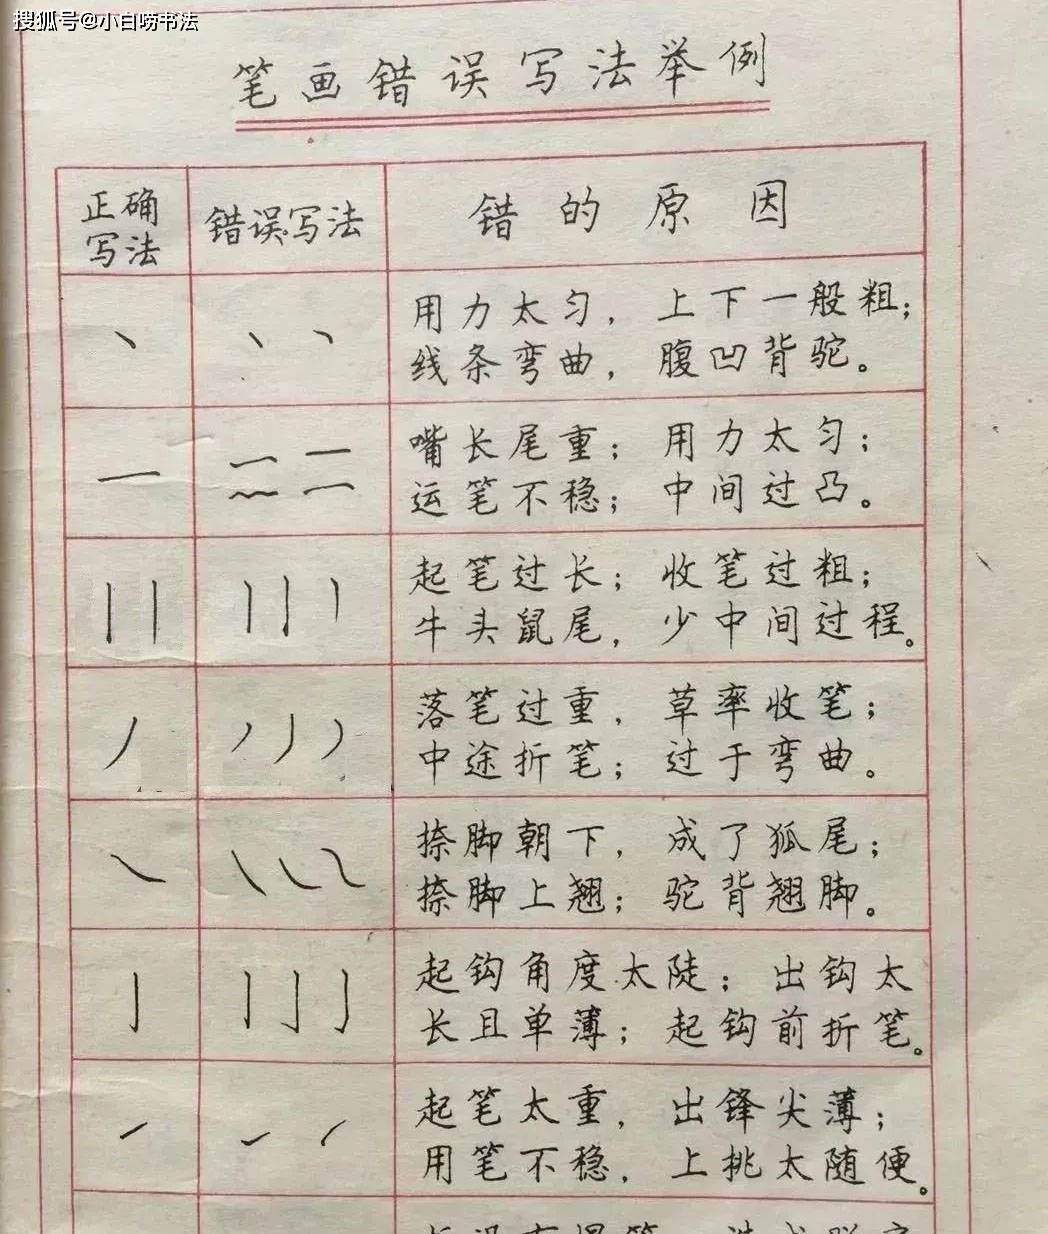 搜狐号@小白唠书法
笔画错误写法举例
正确写法 错误写法 错的原因
用力太匀，上下一般粗；
线条弯曲，腹凹背驼。
嘴长尾重；用力太匀；
运笔不稳；中间过凸。
起笔过长；收笔过粗；
牛头鼠尾，少中间过程。
落笔过重，草率收笔；
中途折笔；过于弯曲。
捺脚朝下，成了狐尾；
捺脚上翘；驼背翘脚。
起钩角度太陡；出钩太
长且单薄；起钩前折笔。
起笔太重，出锋尖薄；
用笔不稳，上挑太随便。